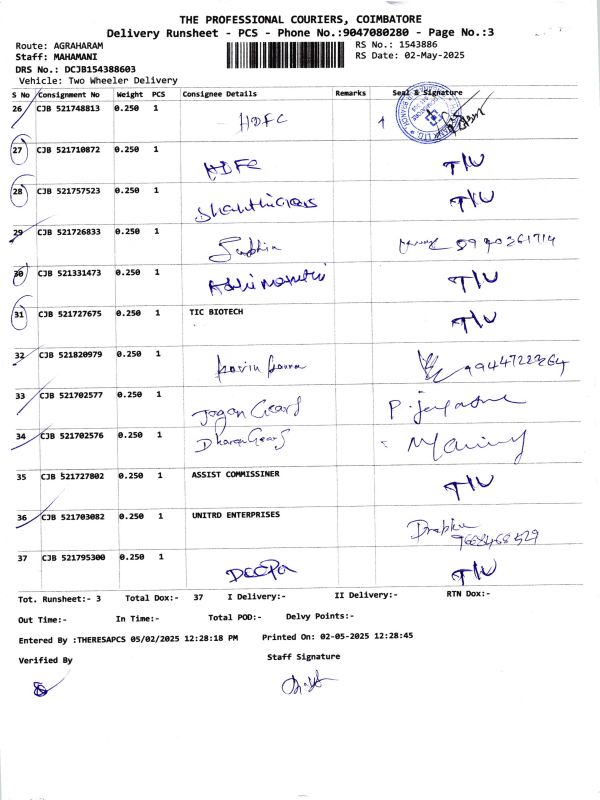 THE PROFESSIONAL COURIERS, COIMBATORE
Delivery Runsheet - PCS - Phone No.:9047080280 - Page No.:3
Route: AGRAHARAM RS No.: 1543886
Staff: MAHAMANI RS Date: 02-May-2025
DRS No.: DCJB154388603
Vehicle: Two Wheeler Delivery
S No Consignment No Weight PCS Consignee Details Remarks Seal & Signature
26 CJB 521748813 0.250 1 HDFC
27 CJB 521710872 0.250 1 HDFC T/U
28 CJB 521757523 0.250 1 T/U
29 CJB 521726833 0.250 1
30 CJB 521331473 0.250 1 T/U
31 CJB 521727675 0.250 1 TIC BIOTECH T/U
32 CJB 521820979 0.250 1
33 CJB 521702577 0.250 1 Jagan Gears
34 CJB 521702576 0.250 1 Gears
35 CJB 521727802 0.250 1 ASSIST COMMISSINER T/U
36 CJB 521703082 0.250 1 UNITRD ENTERPRISES
37 CJB 521795300 0.250 1 DEEPA T/U
Tot. Runsheet:- 3 Total Dox:- 37 I Delivery:- II Delivery:- RTN Dox:-
Out Time:- In Time:- Total POD:- Delvy Points:-
Entered By :THERESAPCS 05/02/2025 12:28:18 PM Printed On: 02-05-2025 12:28:45
Verified By Staff Signature